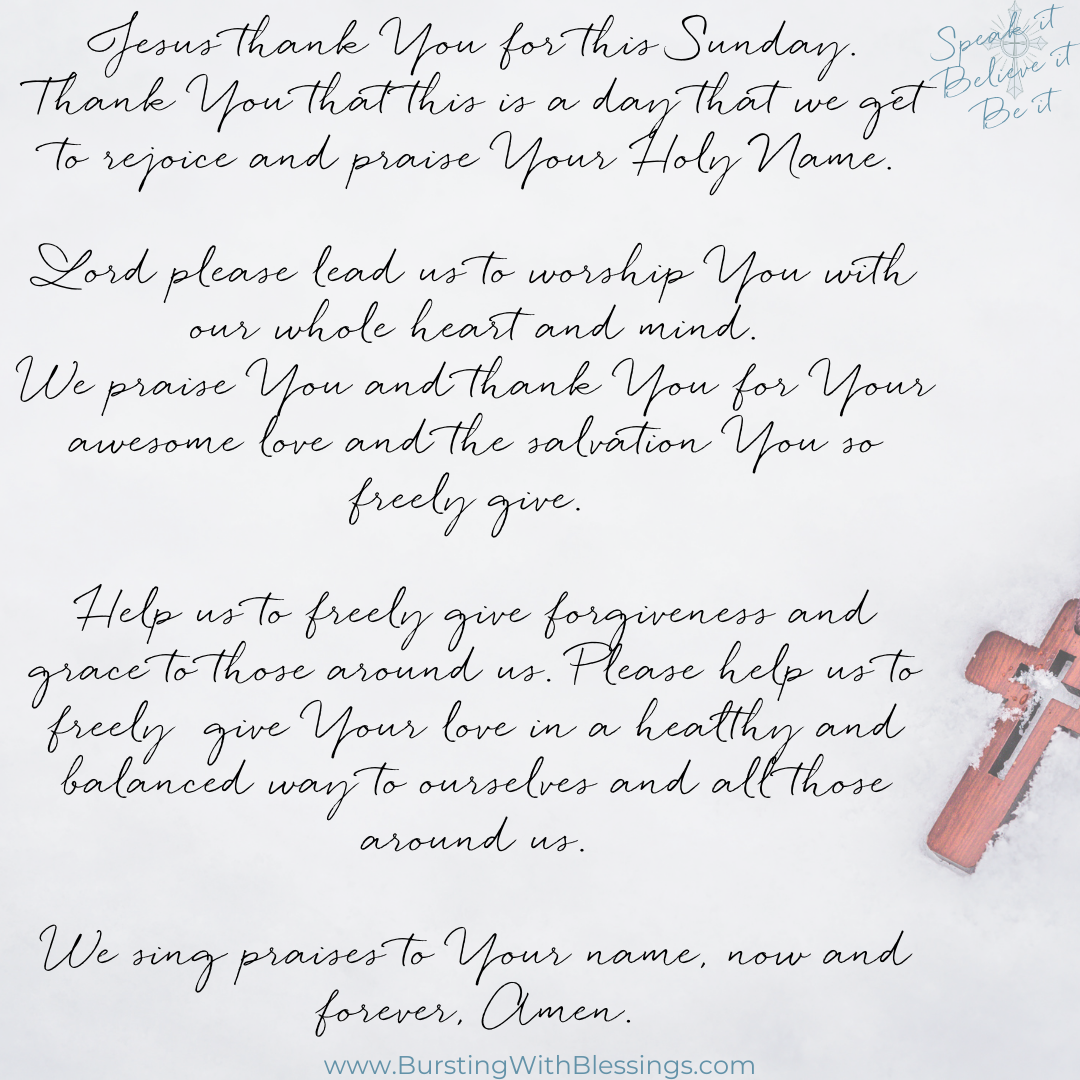 Jesus thank You for this Sunday.
Thank You that this is a day that we get
to rejoice and praise Your Holy Name.
Lord please lead us to worship You with
our whole heart and mind.
We praise You and thank You for Your
awesome love and the salvation You so
freely give.
Help us to freely give forgiveness and
grace to those around us. Please help us to
freely give Your love in a healthy and
balanced way to ourselves and all those
around us.
We sing praises to Your name, now and
forever, Amen.
Speak it
Believe it
Be it
www.BurstingWithBlessings.com